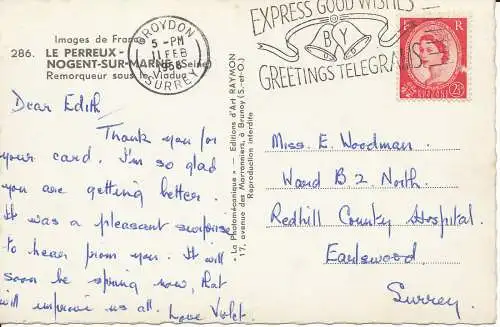 Images de France
286. LE PERREUX -
NOGENT-SUR-MARNE (Seine)
Remorqueur sous le Viaduc
CROYDON
5 - PM
11 FEB
1958
SURREY
EXPRESS GOOD WISHES
BY
GREETINGS TELEGRAMS
R
2½
2½
Dear Edith
Thank you for
your card. I'm so glad
you are getting better.
It was a pleasant surprise
to hear from you. It will
soon be spring now, that
will improve us all. Love Violet.
« La Photomécanique » - Editions d'Art RAYMON
17, avenue des Marronniers, à Brunoy (S.-et-O.)
Reproduction interdite
Miss. E. Woodman.
Ward B2 North.
Redhill County Hospital.
Earlswood.
Surrey.